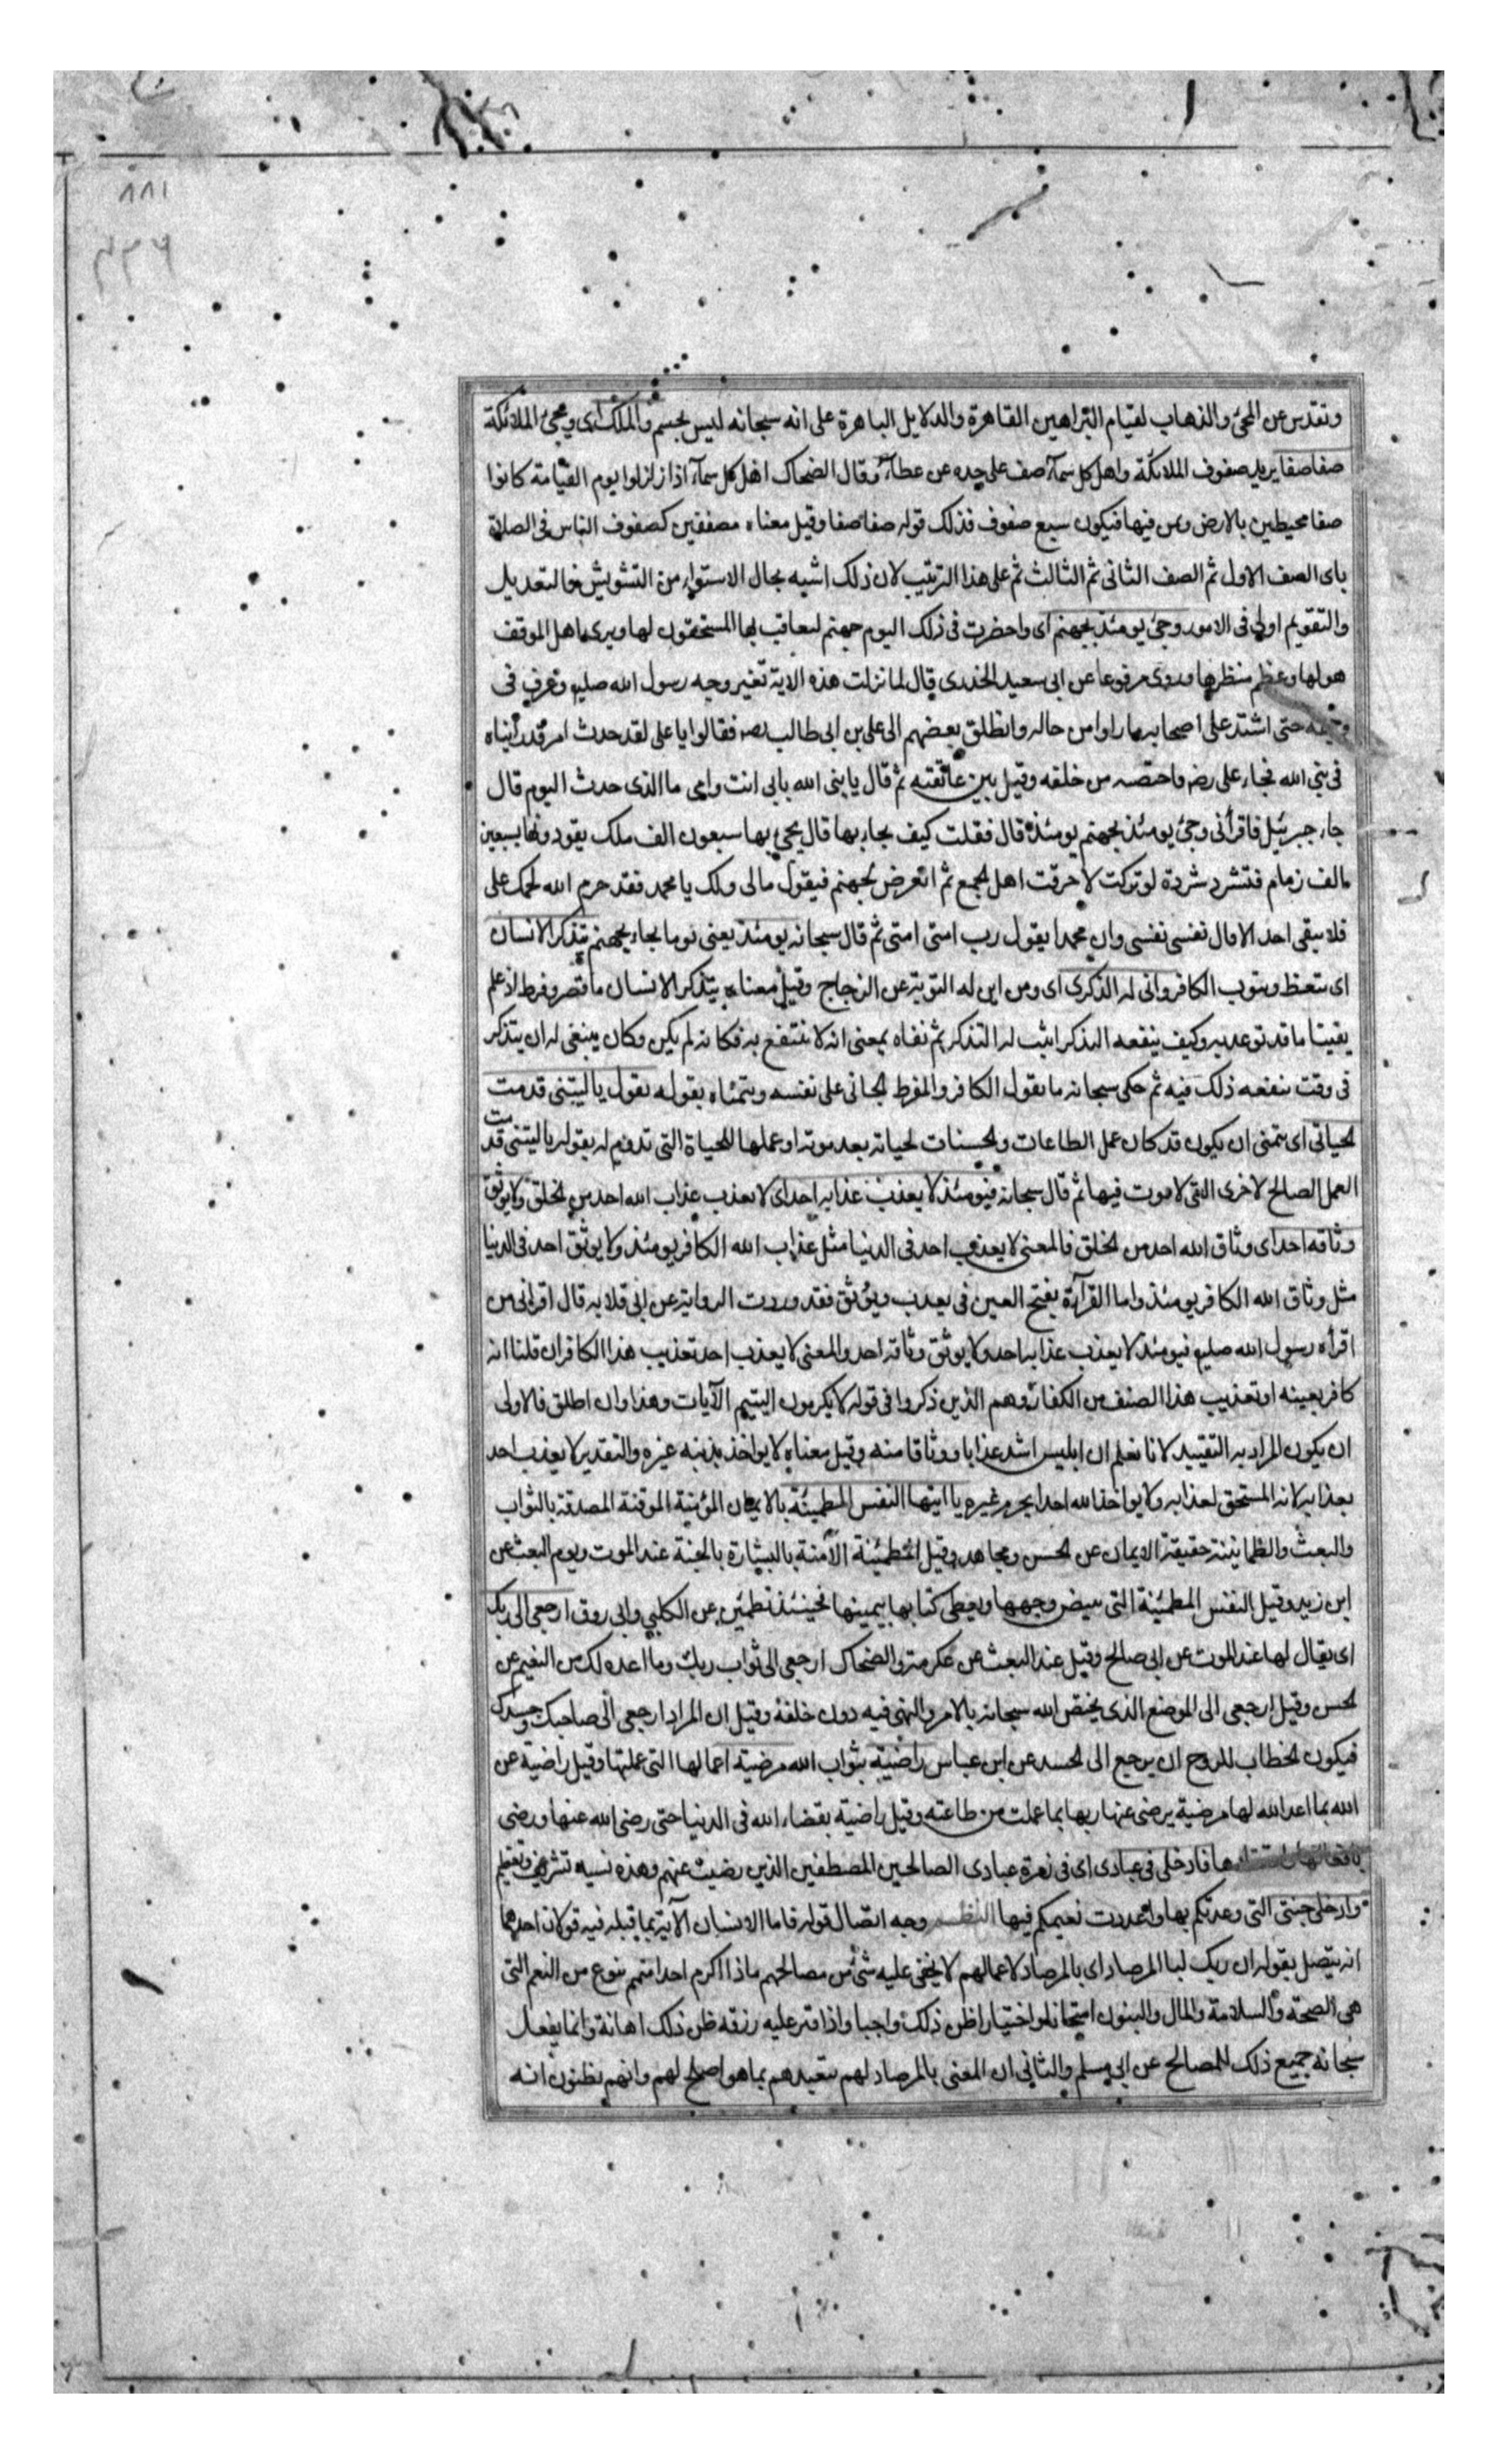 ٨٨١
وتقدس عن المجئ والذهاب لقيام البراهين القاهرة والدلايل الباهرة على انه سبحانه ليس بجسم والملك اى ويجئ الملائكة
صفا صفا يريد صفوف الملائكة واهل كل سمآء صف على حده عن عطآء وقال الضحاك اهل كل سمآء اذا زلزلوا يوم القيامة كانوا
صفا محيطين بالارض ومن فيها فيكون سبع صفوف فذلك قوله صفا صفا وقيل معناه مصففين كصفوف الناس فى الصلاة
ياى الصف الاول ثم الصف الثانى ثم الثالث ثم على هذا الترتيب لان ذلك اشبه بحال الاستواء من التشويش فالتعديل
والتقويم اولى فى الامور وجئ يومئذ بجهنم اى واحضرت فى ذلك اليوم جهنم ليعاقب بها المستحقون لها ويرى اهل الموقف
هولها وعظم منظرها وروى مرفوعا عن ابى سعيد الخدرى قال لما نزلت هذه الاية تغير وجه رسول الله صليو وعرف فى
وجهه حتى اشتد على اصحابه ما راوا من حاله وانطلق بعضهم الى على بن ابى طالب فقالوا يا على لقد حدث امر قد رأيناه
فى نبى الله فجاء على رضه واحتضنه من خلفه وقيل بين عاتقيه ثم قال يا نبى الله بابى انت وامى ما الذى حدث اليوم قال
جاء جبرئيل فاقرأنى وجئ يومئذ بجهنم يومئذ قال فقلت كيف يجاء بها قال يجئ بها سبعون الف ملك يقودونها بسبعين
الف زمام فتشرد شردة لو تركت لاحرقت اهل الجمع ثم اتعرض لجهنم فيقول مالى ولك يا محمد فقد حرم الله لحمك على
فلا يبقى احد الا قال نفسى نفسى وان محمدا يقول رب امتى امتى ثم قال سبحانه يومئذ يعنى يوما يجاء بجهنم يتذكر الانسان
اى يتعظ ويتوب الكافر وانى له الذكرى اى ومن اين له التوبة عن الزجاج وقيل معناه يتذكر الانسان ما قصر وفرط اذ علم
يقينا ما قد توعد به وكيف ينفعه التذكر اثبت له التذكر ثم نفاه بمعنى انه لا ينتفع به فكانه لم يكن وكان ينبغى له ان يتذكر
فى وقت ينفعه ذلك فيه ثم حكى سبحانه ما يقول الكافر والمفرط الجانى على نفسه ويتمناه بقوله يقول ياليتنى قدمت
لحياتى اى يتمنى ان يكون قد كان عمل الطاعات والحسنات لحياته بعد موته او عملها للحياة التى تدوم له بقوله ياليتنى قدمت
العمل الصالح لاخرى التى لا موت فيها ثم قال سبحانه فيومئذ لا يعذب عذابه احد اى لا يعذب عذاب الله احد من الخلق ولا يوثق
وثاقه احد اى وثاق الله احد من الخلق فالمعنى لا يعذب احد فى الدنيا مثل عذاب الله الكافر يومئذ ولا يوثق احد فى الدنيا
مثل وثاق الله الكافر يومئذ واما القرآءة بفتح العين فى يعذب ويوثق فقد وردت الرواية عن ابى قلابه قال اقرانى من
اقرأه رسول الله صليو فيومئذ لا يعذب عذابه احد ولا يوثق وثاقه احد والمعنى لا يعذب احد تعذيب هذا الكافر ان قلنا انه
كافر بعينه او تعذيب هذا الصنف من الكفار وهم الذين ذكروا فى قوله لا يكرمون اليتيم الآيات وهذا وان اطلق فالاولى
ان يكون المراد به التقييد لانا نعلم ان ابليس اشد عذابا ووثاقا منه وقيل معناه لا يواخذ بذنبه غيره والتقدير لا يعذب احد
بعذابه لانه المستحق لعذابه ولا يواخذ الله احدا بجرم غيره يا ايتها النفس المطمئنة بالايمان المؤمنة الموقنة المصدقة بالثواب
والبعث والطمانينة حقيقة الايمان عن الحسن ومجاهد وقيل المطمئنة الآمنة بالبشارة بالجنة عند الموت ويوم البعث عن
ابن زيد وقيل النفس المطمئنة التى يبيض وجهها ويعطى كتابها بيمينها فحينئذ تطمئن عن الكلبى وابى روق ارجعى الى ربك
اى يقال لها عند الموت عن ابى صالح وقيل عند البعث عن عكرمة والضحاك ارجعى الى ثواب ربك وما اعده لك من النعيم عن
الحسن وقيل ارجعى الى الموضع الذى يختص الله سبحانه بالامر والنهى فيه دون خلقه وقيل ان المراد ارجعى الى صاحبك وجسدك
فيكون الخطاب للروح ان يرجع الى الجسد عن ابن عباس راضية بثواب الله مرضية اعمالها التى عملتها وقيل راضية عن
الله بما اعد الله لها مرضية يرضى عنها ربها بما عملت من طاعته وقيل راضية بقضاء الله فى الدنيا حتى رضى الله عنها ورضى
فادخلى فى عبادى اى فى زمرة عبادى الصالحين المصطفين الذين رضيت عنهم وهذه نسبه تشريف وتعظيم
وادخلى جنتى التى وعدتكم بها واعددت نعيمكم فيها النظم وجه اتصال قوله فاما الانسان الآية بما قبله فيه قولان احدهما
انه يتصل بقوله ان ربك لبالمرصاد اى بالمرصاد لاعمالهم لا يخفى عليه شئ من مصالحهم فاذا اكرم احدا منهم بنوع من النعم التى
هى الصحة والسلامة والمال والبنون امتحانا واختيارا ظن ذلك واجبا واذا قتر عليه رزقه ظن ذلك اهانة وانما يفعل
سبحانه جميع ذلك للمصالح عن ابى مسلم والثانى ان المعنى بالمرصاد لهم يتعبدهم بما هو اصلح لهم وانهم يظنون انه